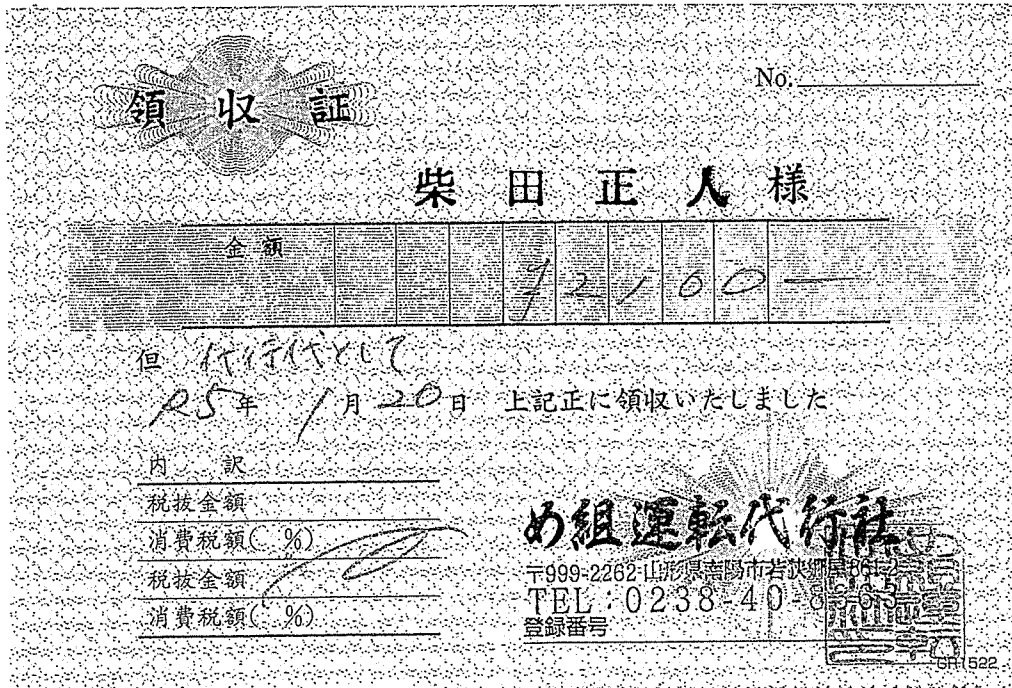 領収証
No.
柴田正人様
金額 ¥2160-
但 代行代として
R5年 1月20日 上記正に領収いたしました
内訳
税抜金額
消費税額( %)
税抜金額
消費税額( %)
め組運転代行社
〒999-2262 山形県南陽市若狭郷屋861-2
TEL:0238-40-8
登録番号
GR1522